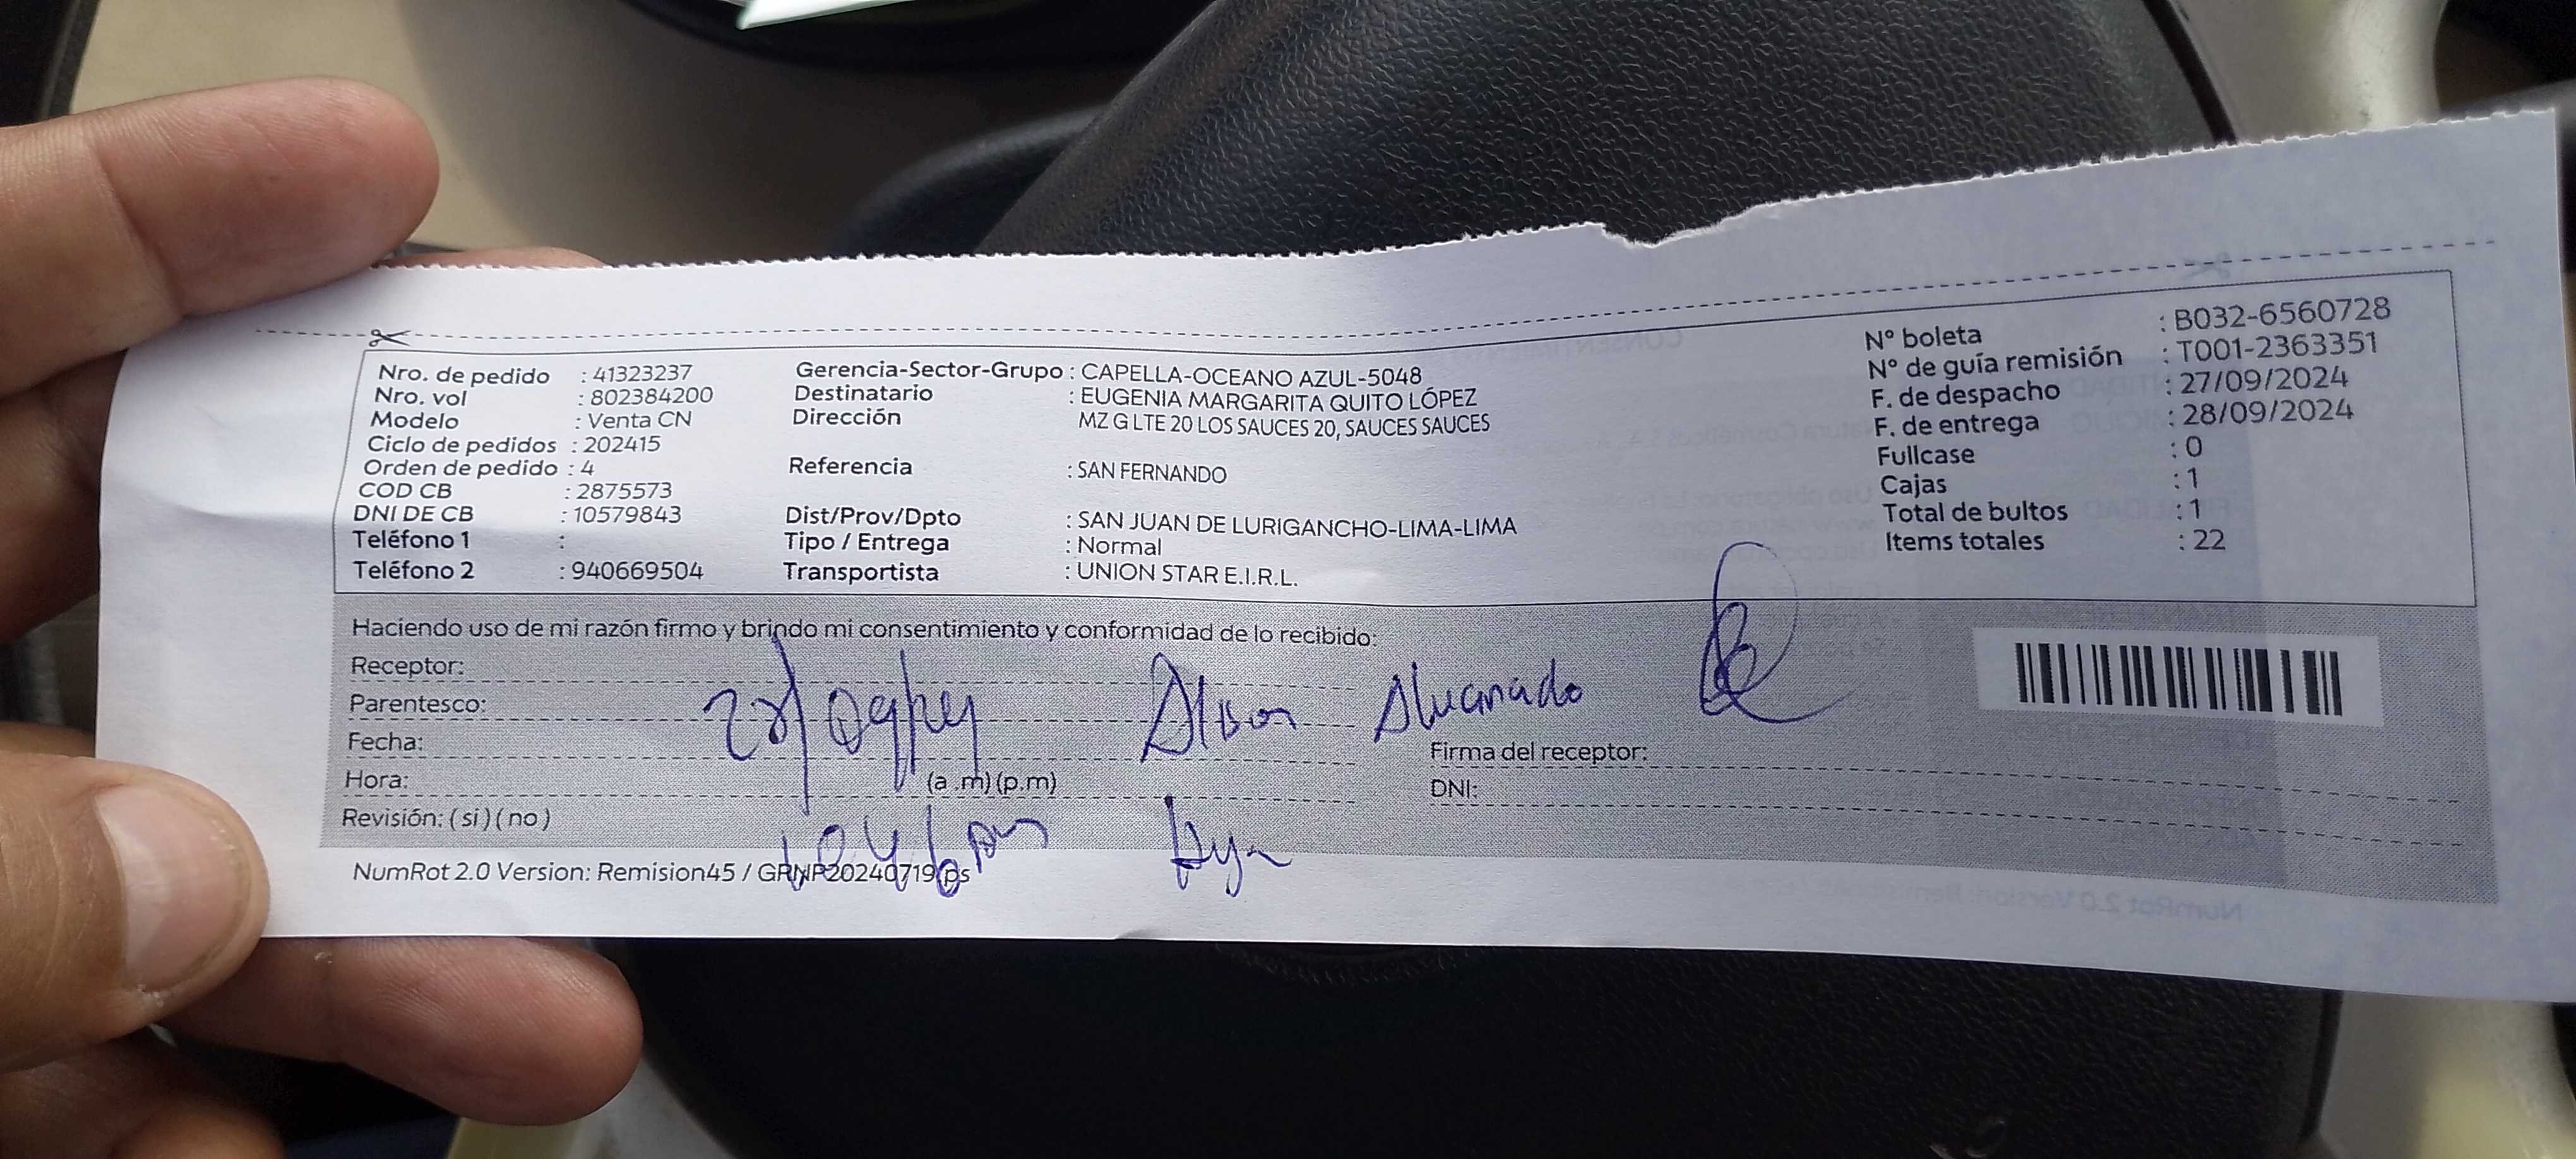 Nro. de pedido : 41323237
Nro. vol : 802384200
Modelo : Venta CN
Ciclo de pedidos : 202415
Orden de pedido : 4
COD CB : 2875573
DNI DE CB : 10579843
Teléfono 1 :
Teléfono 2 : 940669504
Gerencia-Sector-Grupo : CAPELLA-OCEANO AZUL-5048
Destinatario : EUGENIA MARGARITA QUITO LÓPEZ
Dirección MZ G LTE 20 LOS SAUCES 20, SAUCES SAUCES
Referencia : SAN FERNANDO
Dist/Prov/Dpto : SAN JUAN DE LURIGANCHO-LIMA-LIMA
Tipo / Entrega : Normal
Transportista : UNION STAR E.I.R.L.
N° boleta : B032-6560728
N° de guía remisión : T001-2363351
F. de despacho : 27/09/2024
F. de entrega : 28/09/2024
Fullcase : 0
Cajas : 1
Total de bultos : 1
Items totales : 22
Haciendo uso de mi razón firmo y brindo mi consentimiento y conformidad de lo recibido:
Receptor:
Parentesco:
28/09/24 Alison Alvarado
Fecha:
Hora: (a .m) (p.m)
Revisión: ( si ) ( no )
Firma del receptor:
DNI:
NumRot 2.0 Version: Remision45 / GRNP20240719.ps